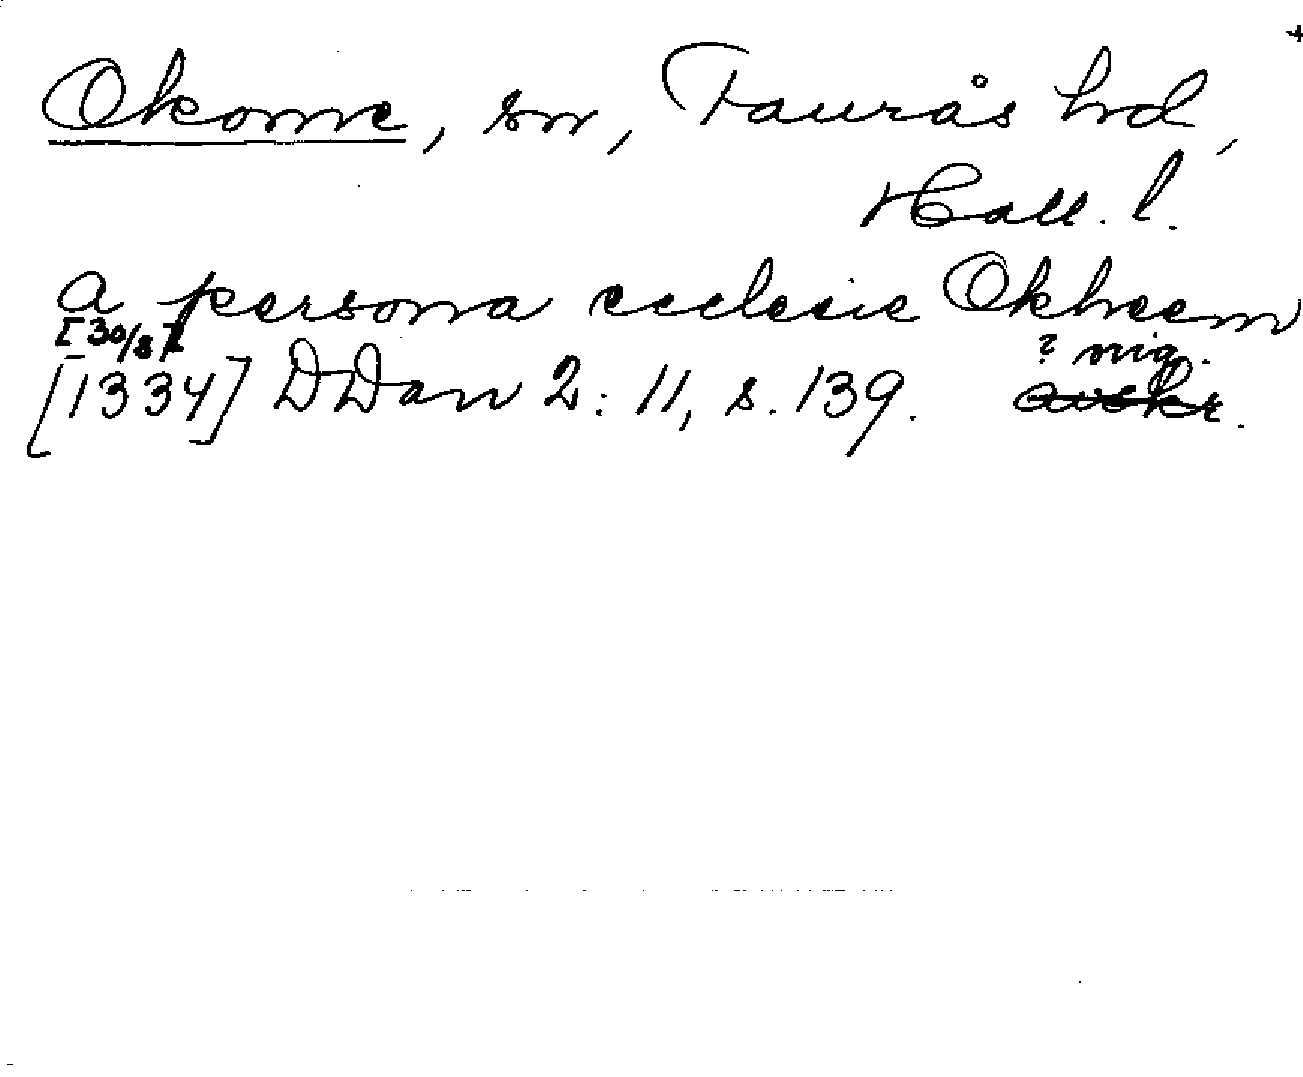 Okome, sn, Faurås hd,
Hall. l.
a persona ecclesie Okheem
[30/8]
[1334] DDan 2: 11, s. 139. avskr.
? vig.